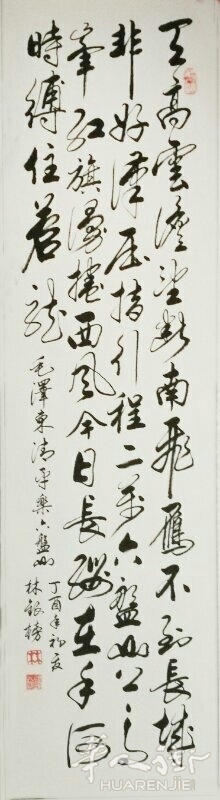 天高雲淡望斷南飛雁不到長城
非好漢屈指行程二萬六盤山上高
峯紅旗漫捲西風今日長纓在手何
時縛住蒼龍
毛澤東清平樂六盤山
丁酉年初夏
林
华人街
HUARENJIE